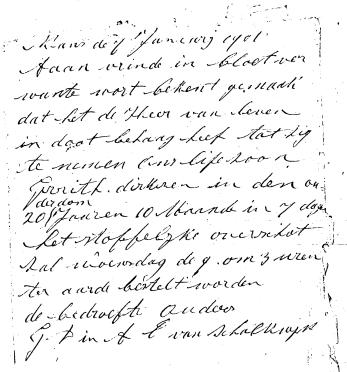 Maus de 7 Januwij 1901
Aaan vrinde in bloet ver
wante wort bekent gemaak
dat het de Heer van leven
in doot behaag heef tot zig
te nemen ons life zoon
Gerrith. dirksen in dem ou
derdom
20 Jaaren 10 Maande in 7 dage
het stoffelijke overschot
zal woensdag de 9 om 3 uren
ter aarde bestelt worden
de bedroefte ouders
G. D in A E van Schalkwijk